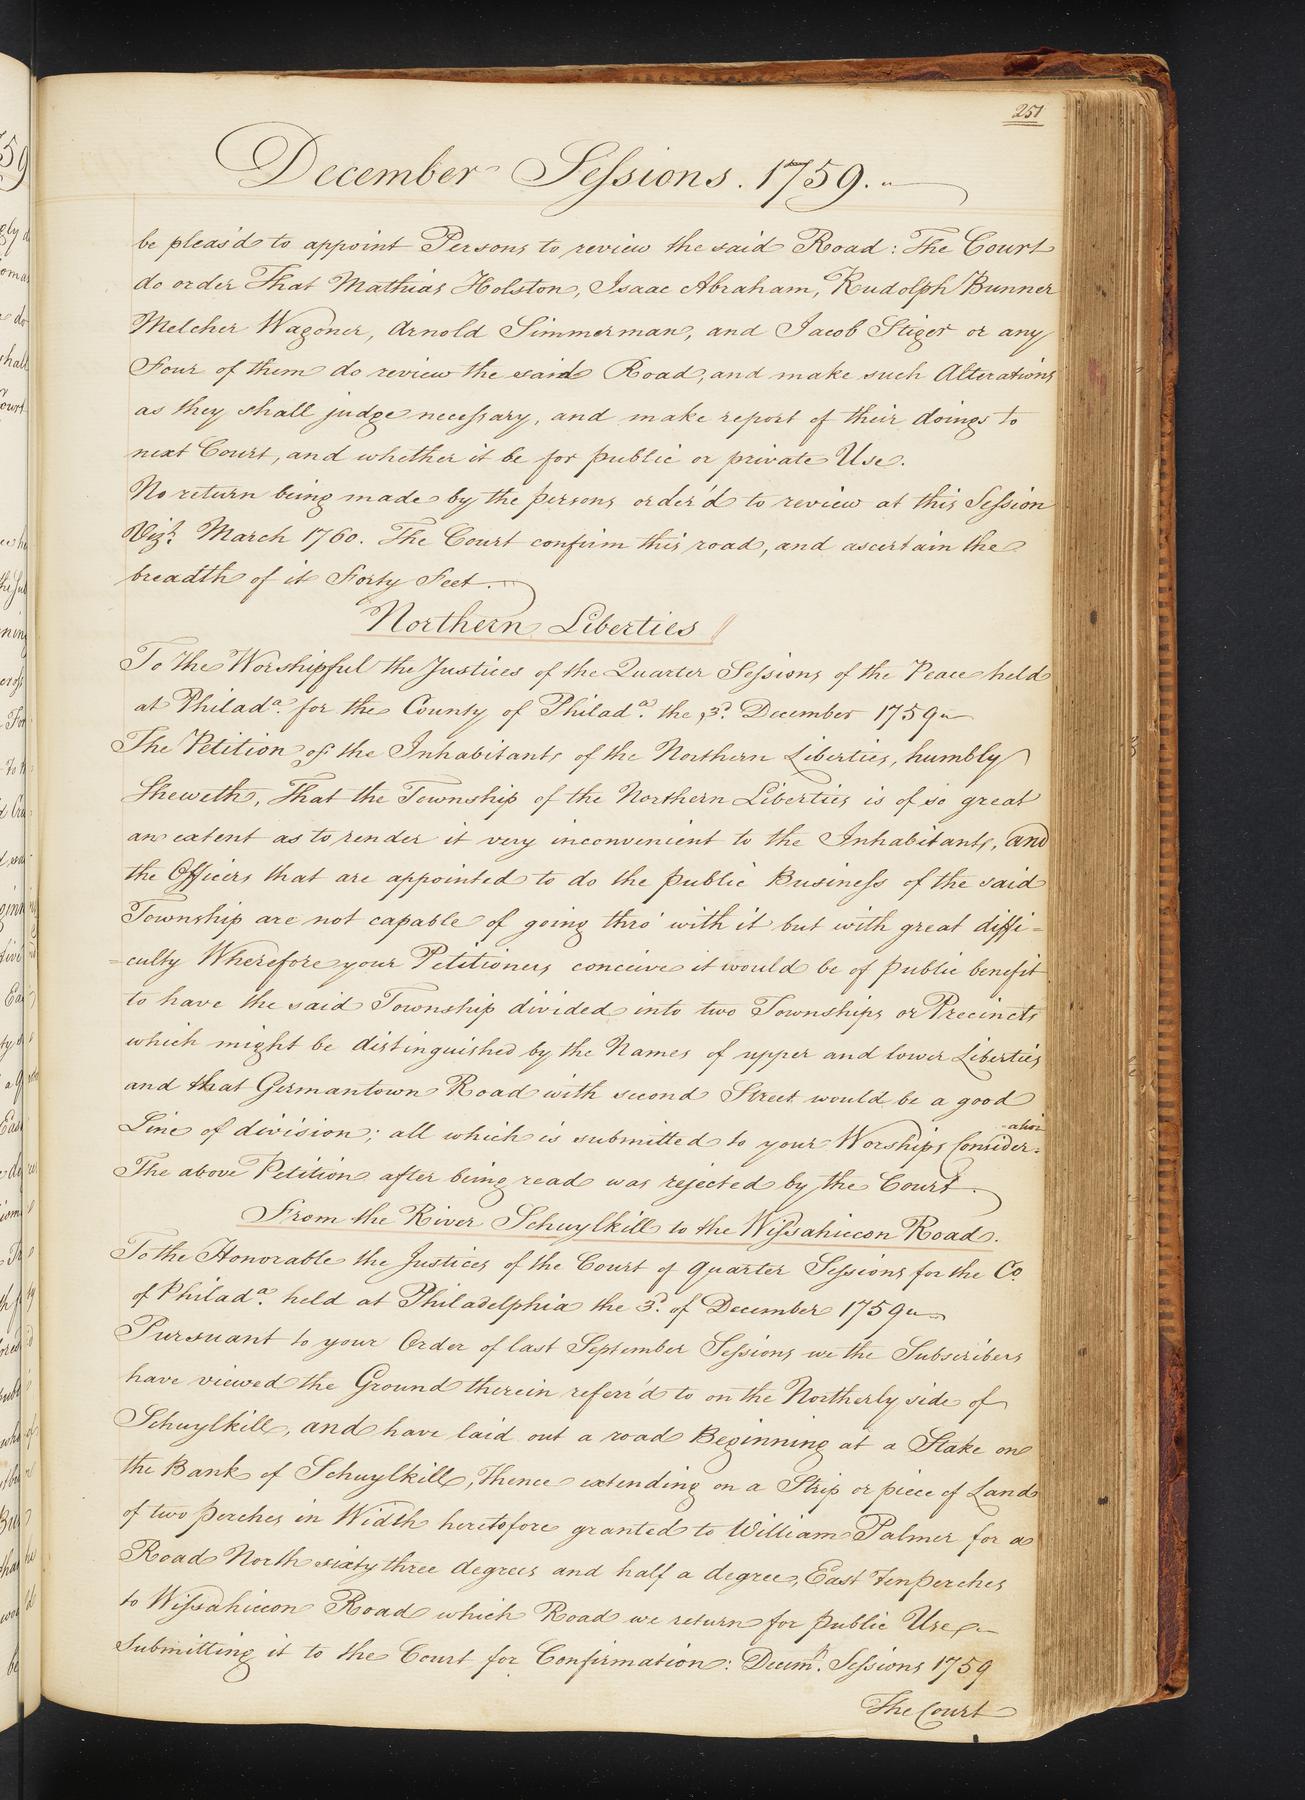 251
December Sessions. 1759.
be pleas'd to appoint Persons to review the said Road: The Court
do order That Mathias Holston, Isaac Abraham, Rudolph Bunner
Melcher Wagoner, Arnold Simmerman, and Jacob Stiger or any
Four of them do review the said Road, and make such Alterations
as they shall judge necessary, and make report of their doings to
next Court, and whether it be for public or private Use.
No return being made by the persons order'd to review at this Session
Vizt. March 1760. The Court confirm this road, and ascertain the
breadth of it Forty Feet.
Northern Liberties
To the Worshipful the Justices of the Quarter Sessions of the Peace held
at Philada. for the County of Philada. the 3d. December 1759
The Petition of the Inhabitants of the Northern Liberties, humbly
Sheweth, That the Township of the Northern Liberties is of so great
an extent as to render it very inconvenient to the Inhabitants, and
the Officers that are appointed to do the public Business of the said
Township are not capable of going thro' with it but with great diffi=
=culty Wherefore your Petitioners conceive it would be of public benefit
to have the said Township divided into two Townships or Precincts
which might be distinguished by the Names of upper and lower Liberties
and that Germantown Road with second Street would be a good
Line of division; all which is submitted to your Worships Consider-ation
The above Petition after being read was rejected by the Court.
From the River Schuylkill to the Wissahiccon Road.
To the Honorable the Justices of the Court of quarter Sessions for the Co.
of Philada. held at Philadelphia the 3d. of December 1759
Pursuant to your Order of last September Sessions we the Subscribers
have viewed the Ground therein referr'd to on the Northerly side of
Schuylkill, and have laid out a road Beginning at a Stake on
the Bank of Schuylkill, Thence extending on a Strip or piece of Land
of two perches in Width heretofore granted to William Palmer for a
Road North sixty three degrees and half a degree, East Ten perches
to Wissahiccon Road which Road we return for public Use
submitting it to the Court for Confirmation: Decemr. Sessions 1759
The Court